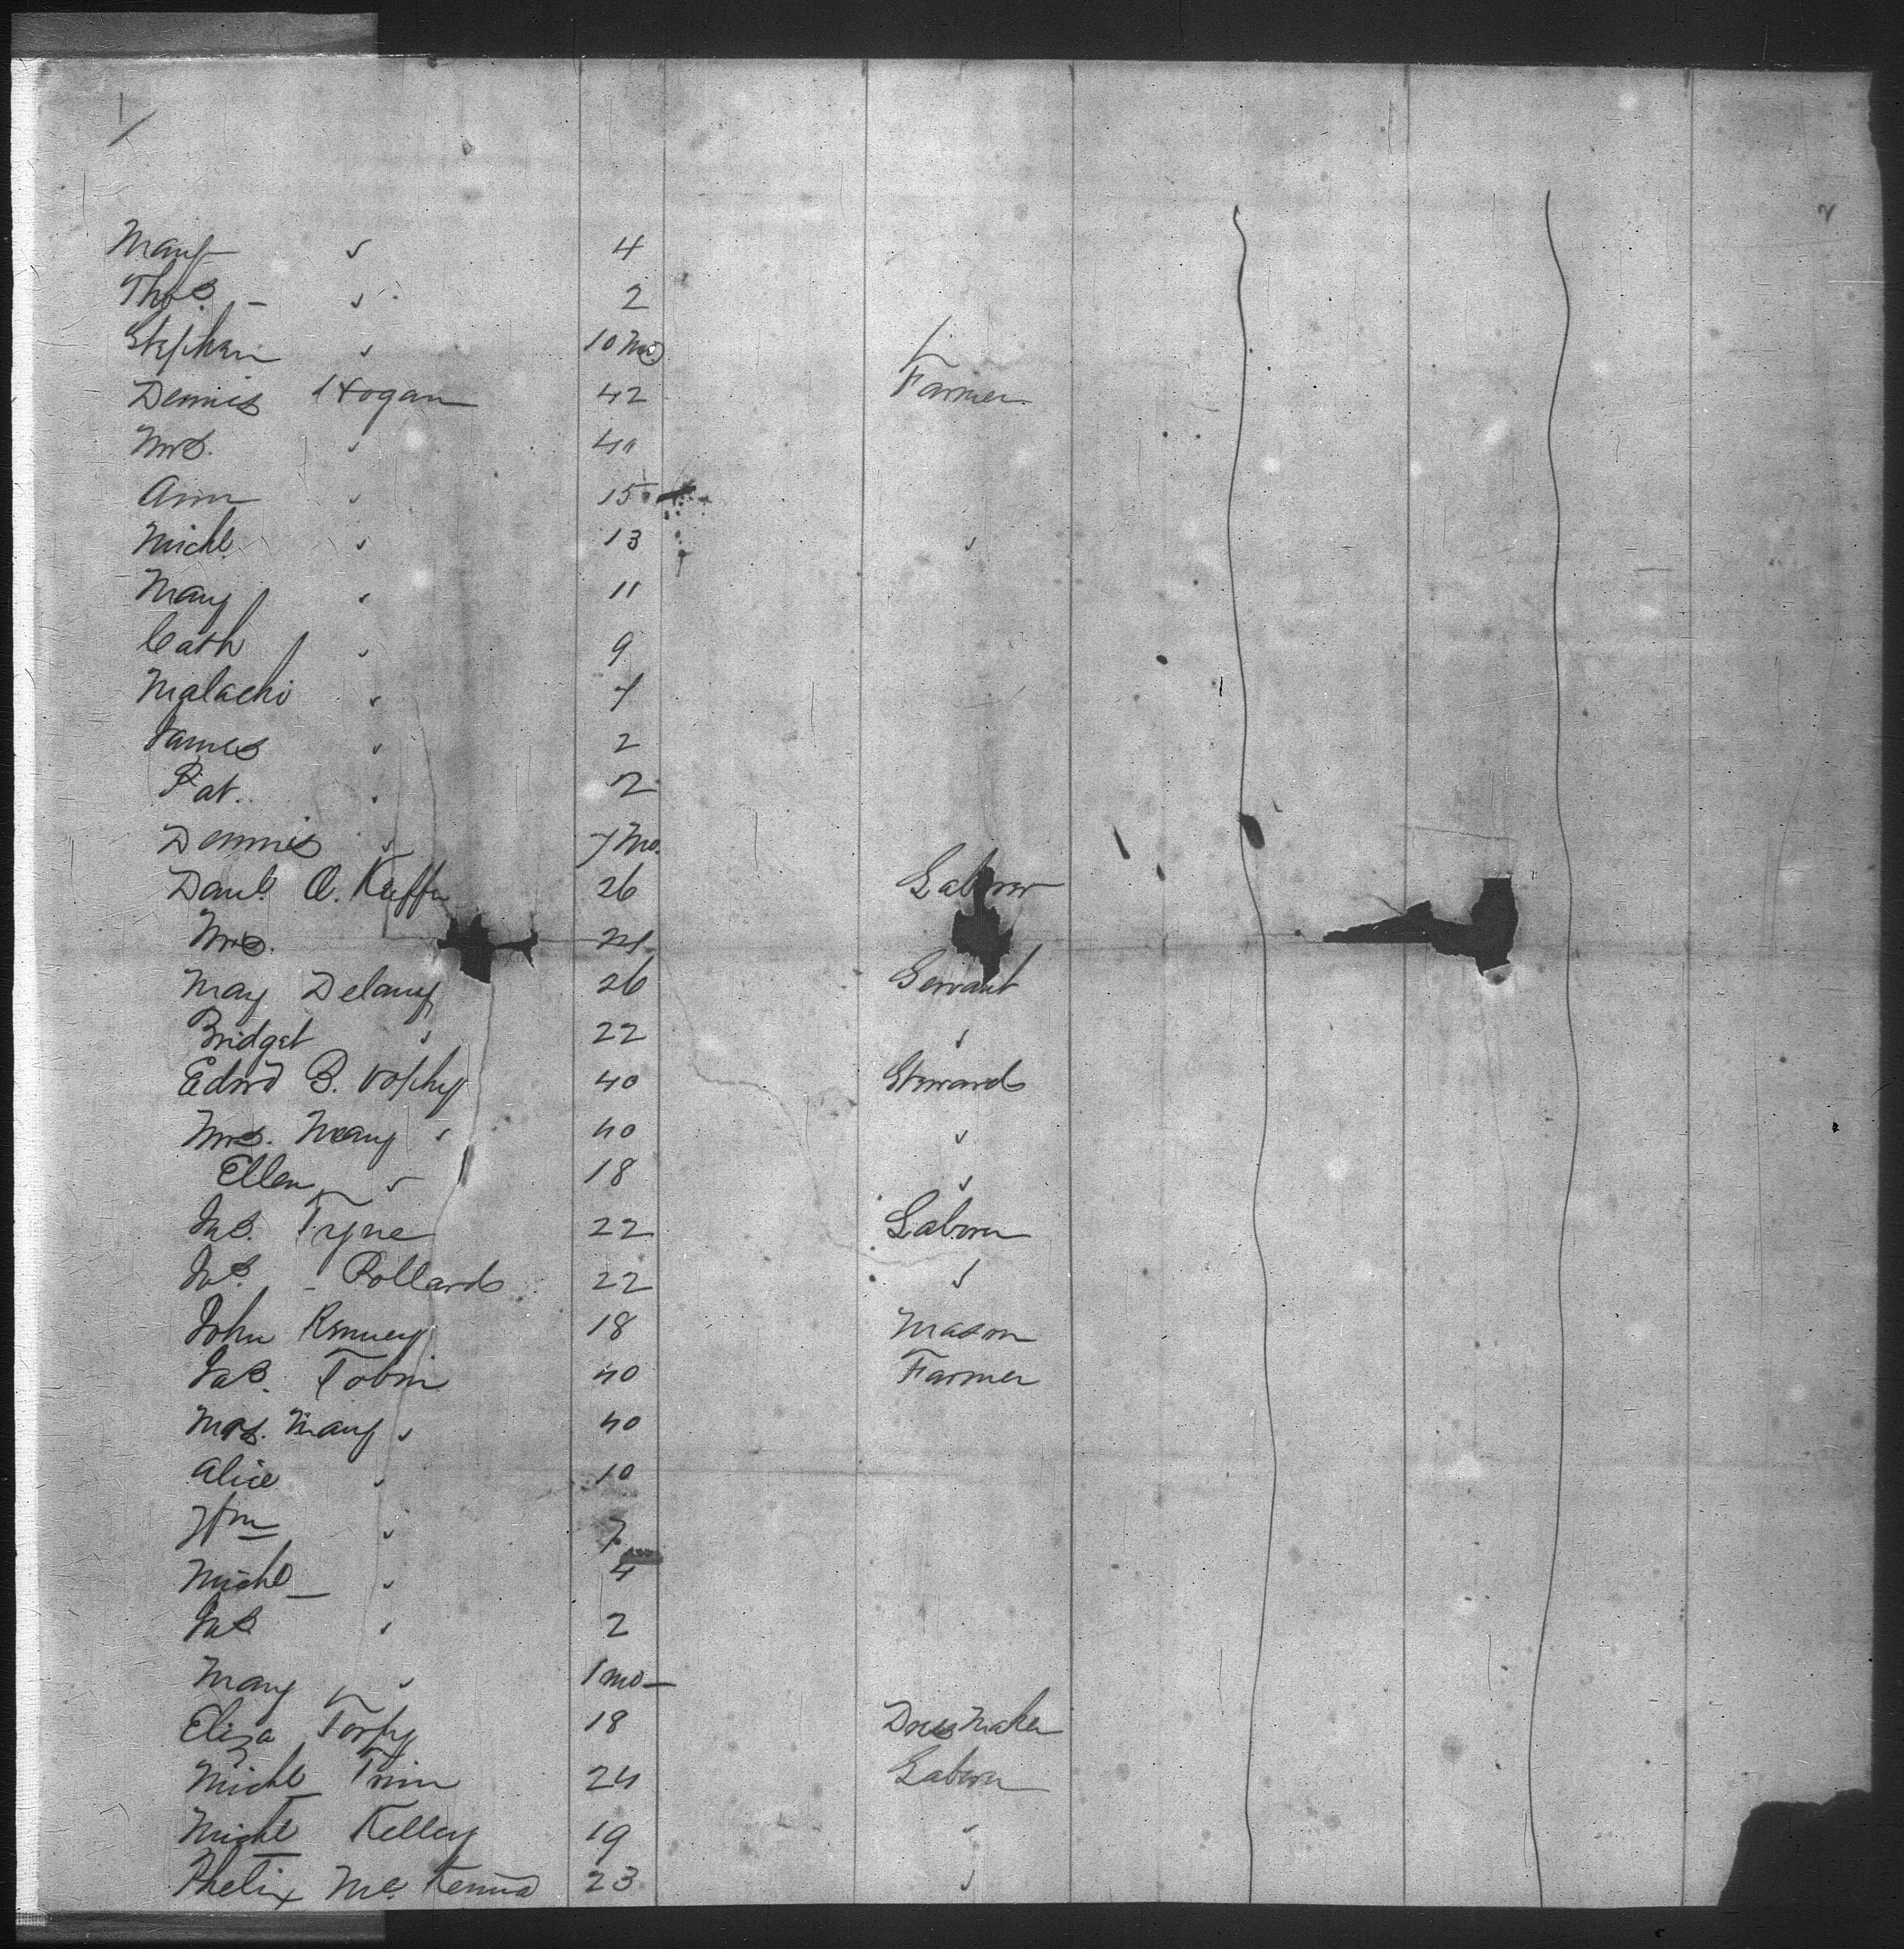 Mary " 4
Thos. - " 2
Stephen " 10 Mo
Dennis Hogan 42 Farmer
Mrs. " 40
Ann " 15
Michl. " 13 "
Mary " 11
Cath " 9
Malachi " 4
James " 2
Pat. " 2
Dennis " 7 Mo.
Danl. O. Keffe 26 Laborer
Mrs. 24
Mary Delany 26 Servant
Bridget " 22 "
Edwd B. 40 Steward
Mrs. Mary " 40 "
Ellen " 18 "
Jas. Tyne 22 Laborer
Jas. - Pollard 22 "
John Kenney 18 Mason
Jas. Tobin 40 Farmer
Mrs. Mary " 40
Alice " 10
Wm " 7
Michl " 4
Jas " 2
Mary " 1 mo
Eliza Torpy 18 Dress Maker
Michl Trim 24 Laborer
Michl Kelley 19 "
Phelix Mc. Kenna 23 "